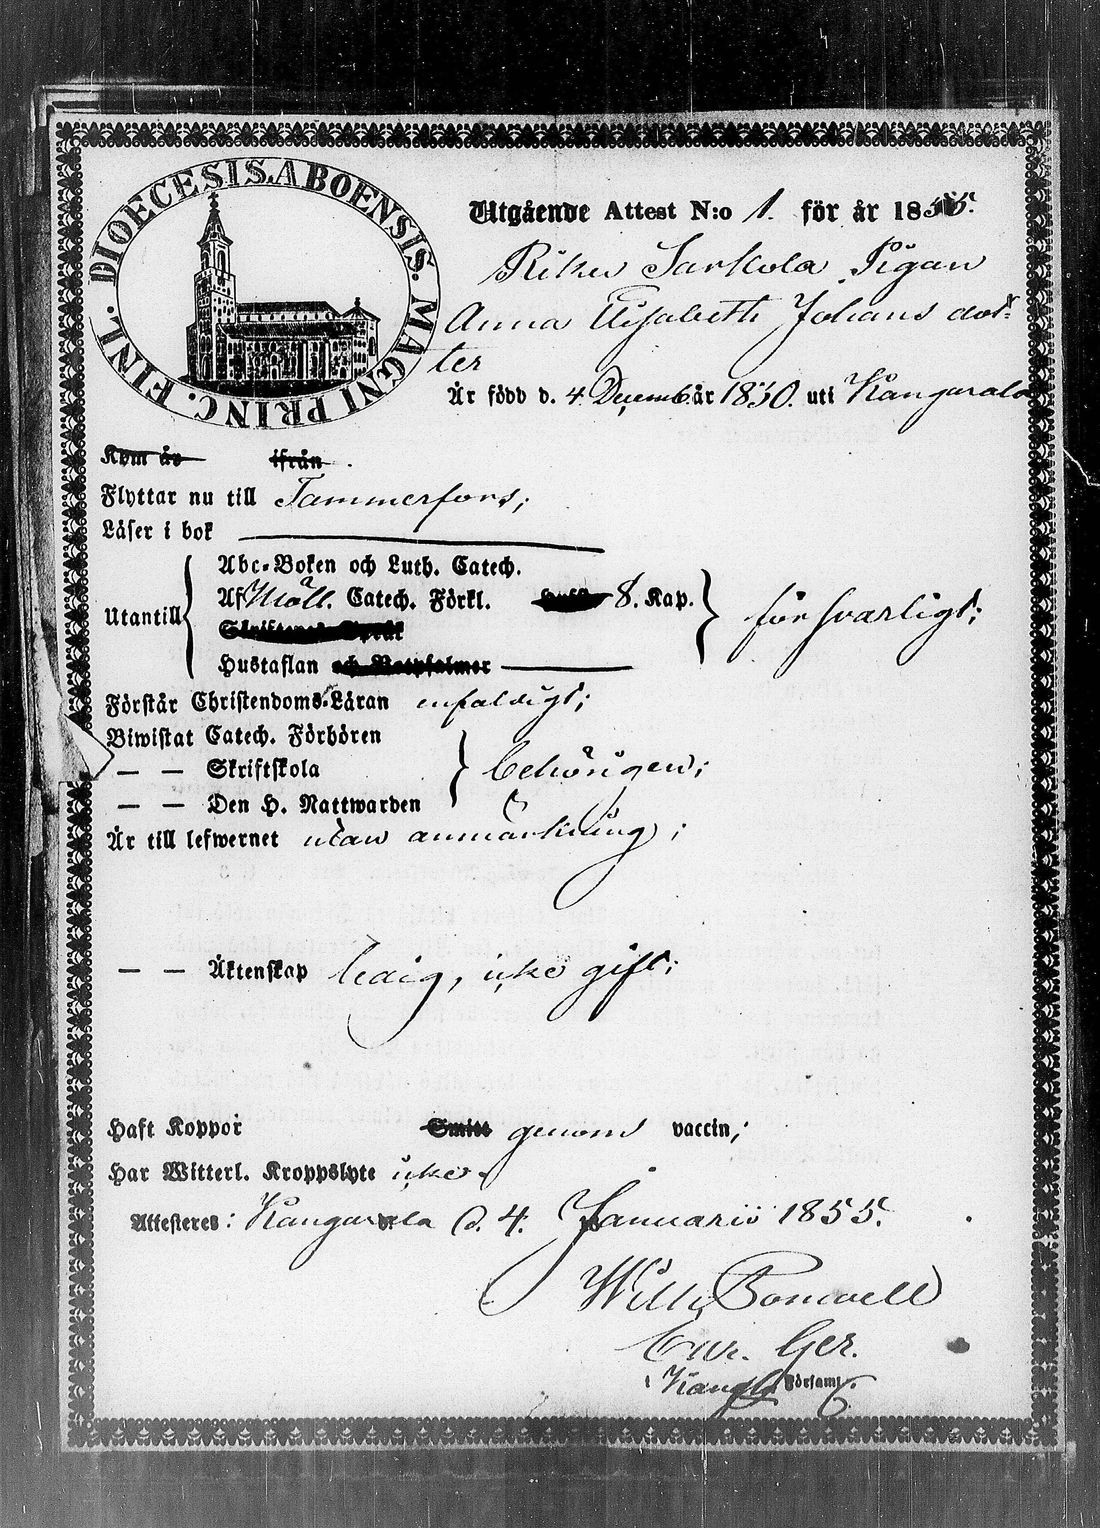 DIOECESIS ABOENSIS. MAGNI PRINC. FINL.
Utgående Attest N:o 1. för år 1855.
Sarkola Pigan
Anna Elisabeth Johans dot-
ter
Är född d. 4 Decemb. år 1830. uti Kangasala
Kom år ifrån
Flyttar nu till Tammerfors;
Läser i bok
Abc-Boken och Luth. Catech.
Utantill Af Möll. Catech. Förkl. 8. Kap. försvarligt;
Skriftenes Språk
Hustaflan och Botpsalmer
Förstår Christendoms-Läran enfaldigt;
Biwistat Catech. Förhören
— — Skriftskola behörigen;
— — Den H. Nattwarden
Är till lefwernet utan anmärkning;
— — Äktenskap ledig, icke gift;
Haft Koppor Smitt genom vaccin;
Har Witterl. Kroppslyte icke.
Attesteres: Kangasala d. 4. Januarii 1855.
Wilh.
Cur. Ger.
i Kangla Församl.